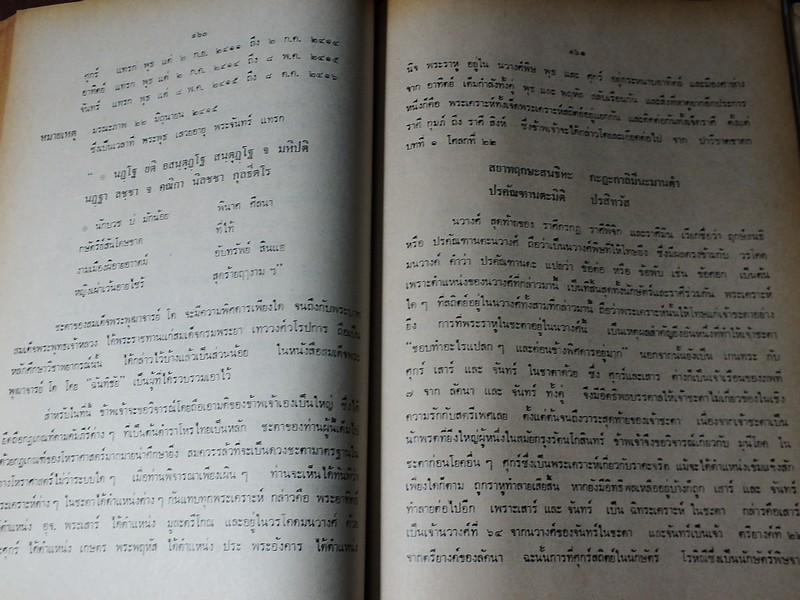 ๑๖๐
ศุกร์ แทรก พุธ แต่ ๒ ก.ย. ๒๔๑๑ ถึง ๒ ก.ค. ๒๔๑๔
อาทิตย์ แทรก พุธ แต่ ๒ ก.ค. ๒๔๑๔ ถึง ๘ พ.ค. ๒๔๑๕
จันทร์ แทรก พุธ แต่ ๘ พ.ค. ๒๔๑๕ ถึง ๘ ต.ค. ๒๔๑๖
หมายเหตุ มรณะภาพ ๒๒ มิถุนายน ๒๔๑๕
ซึ่งเป็นเวลาที่ พระพุธ เสวยอายุ พระจันทร์ แทรก
นฏฺโฐ ยติ อสนฺตุฏฺโฐ สนฺตุฏฺโฐ จ มหีปติ
นฏฺฐา ลชฺชา จ คณิกา นิลชฺชา กุลธีตโร
นักบวช บ่ มักน้อย พินาศ ศีลนา
กษัตริย์สันโดษชาต ที่ใท้
งามเมือง อับทรัพย์ สินแฮ
หญิงเผ่าเว้นอายไซร้ สุดร้าย งาม ๆ"
ชะตาของสมเด็จพระพุฒาจารย์ โต จะมีความพิศดารเพียงใด จนถึงกับพระบาท
สมเด็จพระพุทธเจ้าหลวง ได้พระราชทานแก่สมเด็จกรมพระยา เทววงศ์วโรปการ ถือเป็น
หลักศึกษาวิชาพยากรณ์นั้น ได้กล่าวไว้บ้างแล้วเป็นส่วนน้อย ในหนังสือสมเด็จพระ
พุฒาจารย์ โต โดย "ฉันทิชัย" เป็นผู้ที่ได้รวบรวมเอาไว้
สำหรับในที่นี้ ข้าพเจ้าจะขอวิจารณ์โดยถือเอามติของข้าพเจ้าเองเป็นใหญ่ ซึ่งได้
ยึดถือกฎเกณฑ์ตามคัมภีร์ต่าง ๆ ที่เป็นต้นตำราโหรไทยเป็นหลัก ชะตาของท่านผู้นี้เต็มไป
ด้วยกฎเกณฑ์ของโหราศาสตร์มากมายน่าศึกษายิ่ง สมควรแล้วที่จะเป็นดวงชะตามาตรฐานใน
ทางโหราศาสตร์ไม่ว่าระบบใด ๆ เมื่อท่านพิจารณาเพียงเผิน ๆ ท่านจะเห็นได้ทันทีว่า
พระเคราะห์ต่าง ๆ ในชะตาได้ตำแหน่งต่าง ๆ กันแทบทุกพระเคราะห์ กล่าวคือ พระอาทิตย์
ได้ตำแหน่ง อุจ. พระเสาร์ ได้ตำแหน่ง มูละตรีโกณ และอยู่ในวรโคตมนวางศ์ ด้วย
พระศุกร์ ได้ตำแหน่ง เกษตร พระพฤหัส ได้ตำแหน่ง ประ พระอังคาร ได้ตำแหน่ง
๑๖๑
นิจ พระราหู อยู่ใน นวางค์พิษ พุธ และ ศุกร์ อยู่กระหนาบอาทิตย์ และมีองศาห่าง
จาก อาทิตย์ เต็มกำลังทั้งคู่ พุธ และ พฤหัส กลับเรือนกัน และสิ่งที่น่าดูยากอีกประการ
หนึ่งก็คือ พระเคราะห์ทั้งเจ็ดพระเคราะห์สถิตย์อยู่แยกกัน และติดต่อกันทั้งเจ็ดราศี ตั้งแต่
ราศี กุมภ์ ถึง ราศี สิงห์ ซึ่งข้าพเจ้าจะได้กล่าวโดยละเอียดต่อไป จาก ปาริชาตชาดก
บทที่ ๑ โศลกที่ ๒๒
สยาทฤกษะสนธิหะ กะฏะกาลิมีนะมานตำ
ปรคัณฑานตะมิติ ประสิทวัส
นวางค์ สุดท้ายของ ราศีกรกฎ ราศีพิจิก และราศีมีน เรียกชื่อว่า ฤกษ์สนธิ
หรือ ปรคัณฑานตะนวางค์ ถือว่าเป็นนวางค์พิษที่ให้โทษยิ่ง ซึ่งมีผลตรงข้ามกับ วรโคต
มนวางค์ คำว่า ปรคัณฑานตะ แปลว่า ข้อต่อ หรือ ข้อพับ เช่น ข้อศอก เป็นต้น
เพราะตำแหน่งของนวางค์ที่กล่าวมานี้ เป็นที่สิ้นสุดทั้งนักษัตร์และราศีร่วมกัน พระเคราะห์
ใด ๆ ที่สถิตย์อยู่ในนวางค์ทั้งสามที่กล่าวมานี้ ถือว่าพระเคราะห์นั้นให้โทษแก่เจ้าชะตาอย่าง
ยิ่ง การที่พระราหูในชะตาอยู่ในนวางค์นี้ เป็นเหตุผลสำคัญยิ่งอันหนึ่งที่ทำให้เจ้าชะตา
"ชอบทำอะไรแปลก ๆ และค่อนข้างพิศดารอยู่มาก" นอกจากนั้นองเป็น เกนทระ กับ
ศุกร์ เสาร์ และ จันทร์ ในชาตาด้วย ซึ่ง ศุกร์และเสาร์ ต่างก็เป็นเจ้าเรือนของภพที่
๗ จาก ลัคนา และ จันทร์ ทั้งคู่ จึงมีอิทธิพลบรรดาลให้เจ้าชะตาไม่เกี่ยวของในเชิง
ความรักกับสตรีเพศเลย ตั้งแต่ต้นจนถึงวาระสุดท้ายของเจ้าชะตา เนื่องจากเจ้าชะตาเป็น
นักพรตที่ยิ่งใหญ่ผู้หนึ่งในสมัยกรุงรัตนโกสินทร์ ข้าพเจ้าจึงขอวิจารณ์เกี่ยวกับ มุนีโยค ใน
ชะตาก่อนโยคอื่น ๆ ศุกร์ซึ่งเป็นพระเคราะห์เกี่ยวกับราคะจริต แม้จะได้ตำแหน่งเข้มแข็งสัก
เพียงใดก็ตาม ถูกราหูทำลายเสียสิ้น หากยังมีอิทธิพลเหลืออยู่บ้างก็ถูก เสาร์ และ จันทร์
ทำลายต่อไปอีก เพราะเสาร์ และ จันทร์ เป็น ฉิทระเคราะห์ ในชะตา กล่าวคือเสาร์
เป็นเจ้านวางค์ที่ ๖๔ จากนวางค์ของจันทร์ในชะตา และจันทร์เป็นเจ้า ตรียางค์ที่ ๒๒
จากตรียางค์ของลัคนา ฉะนั้นการที่ศุกร์สถิตย์ในนักษัตร์ โรหิณีซึ่งเป็นนักษัตร์พิษจาก